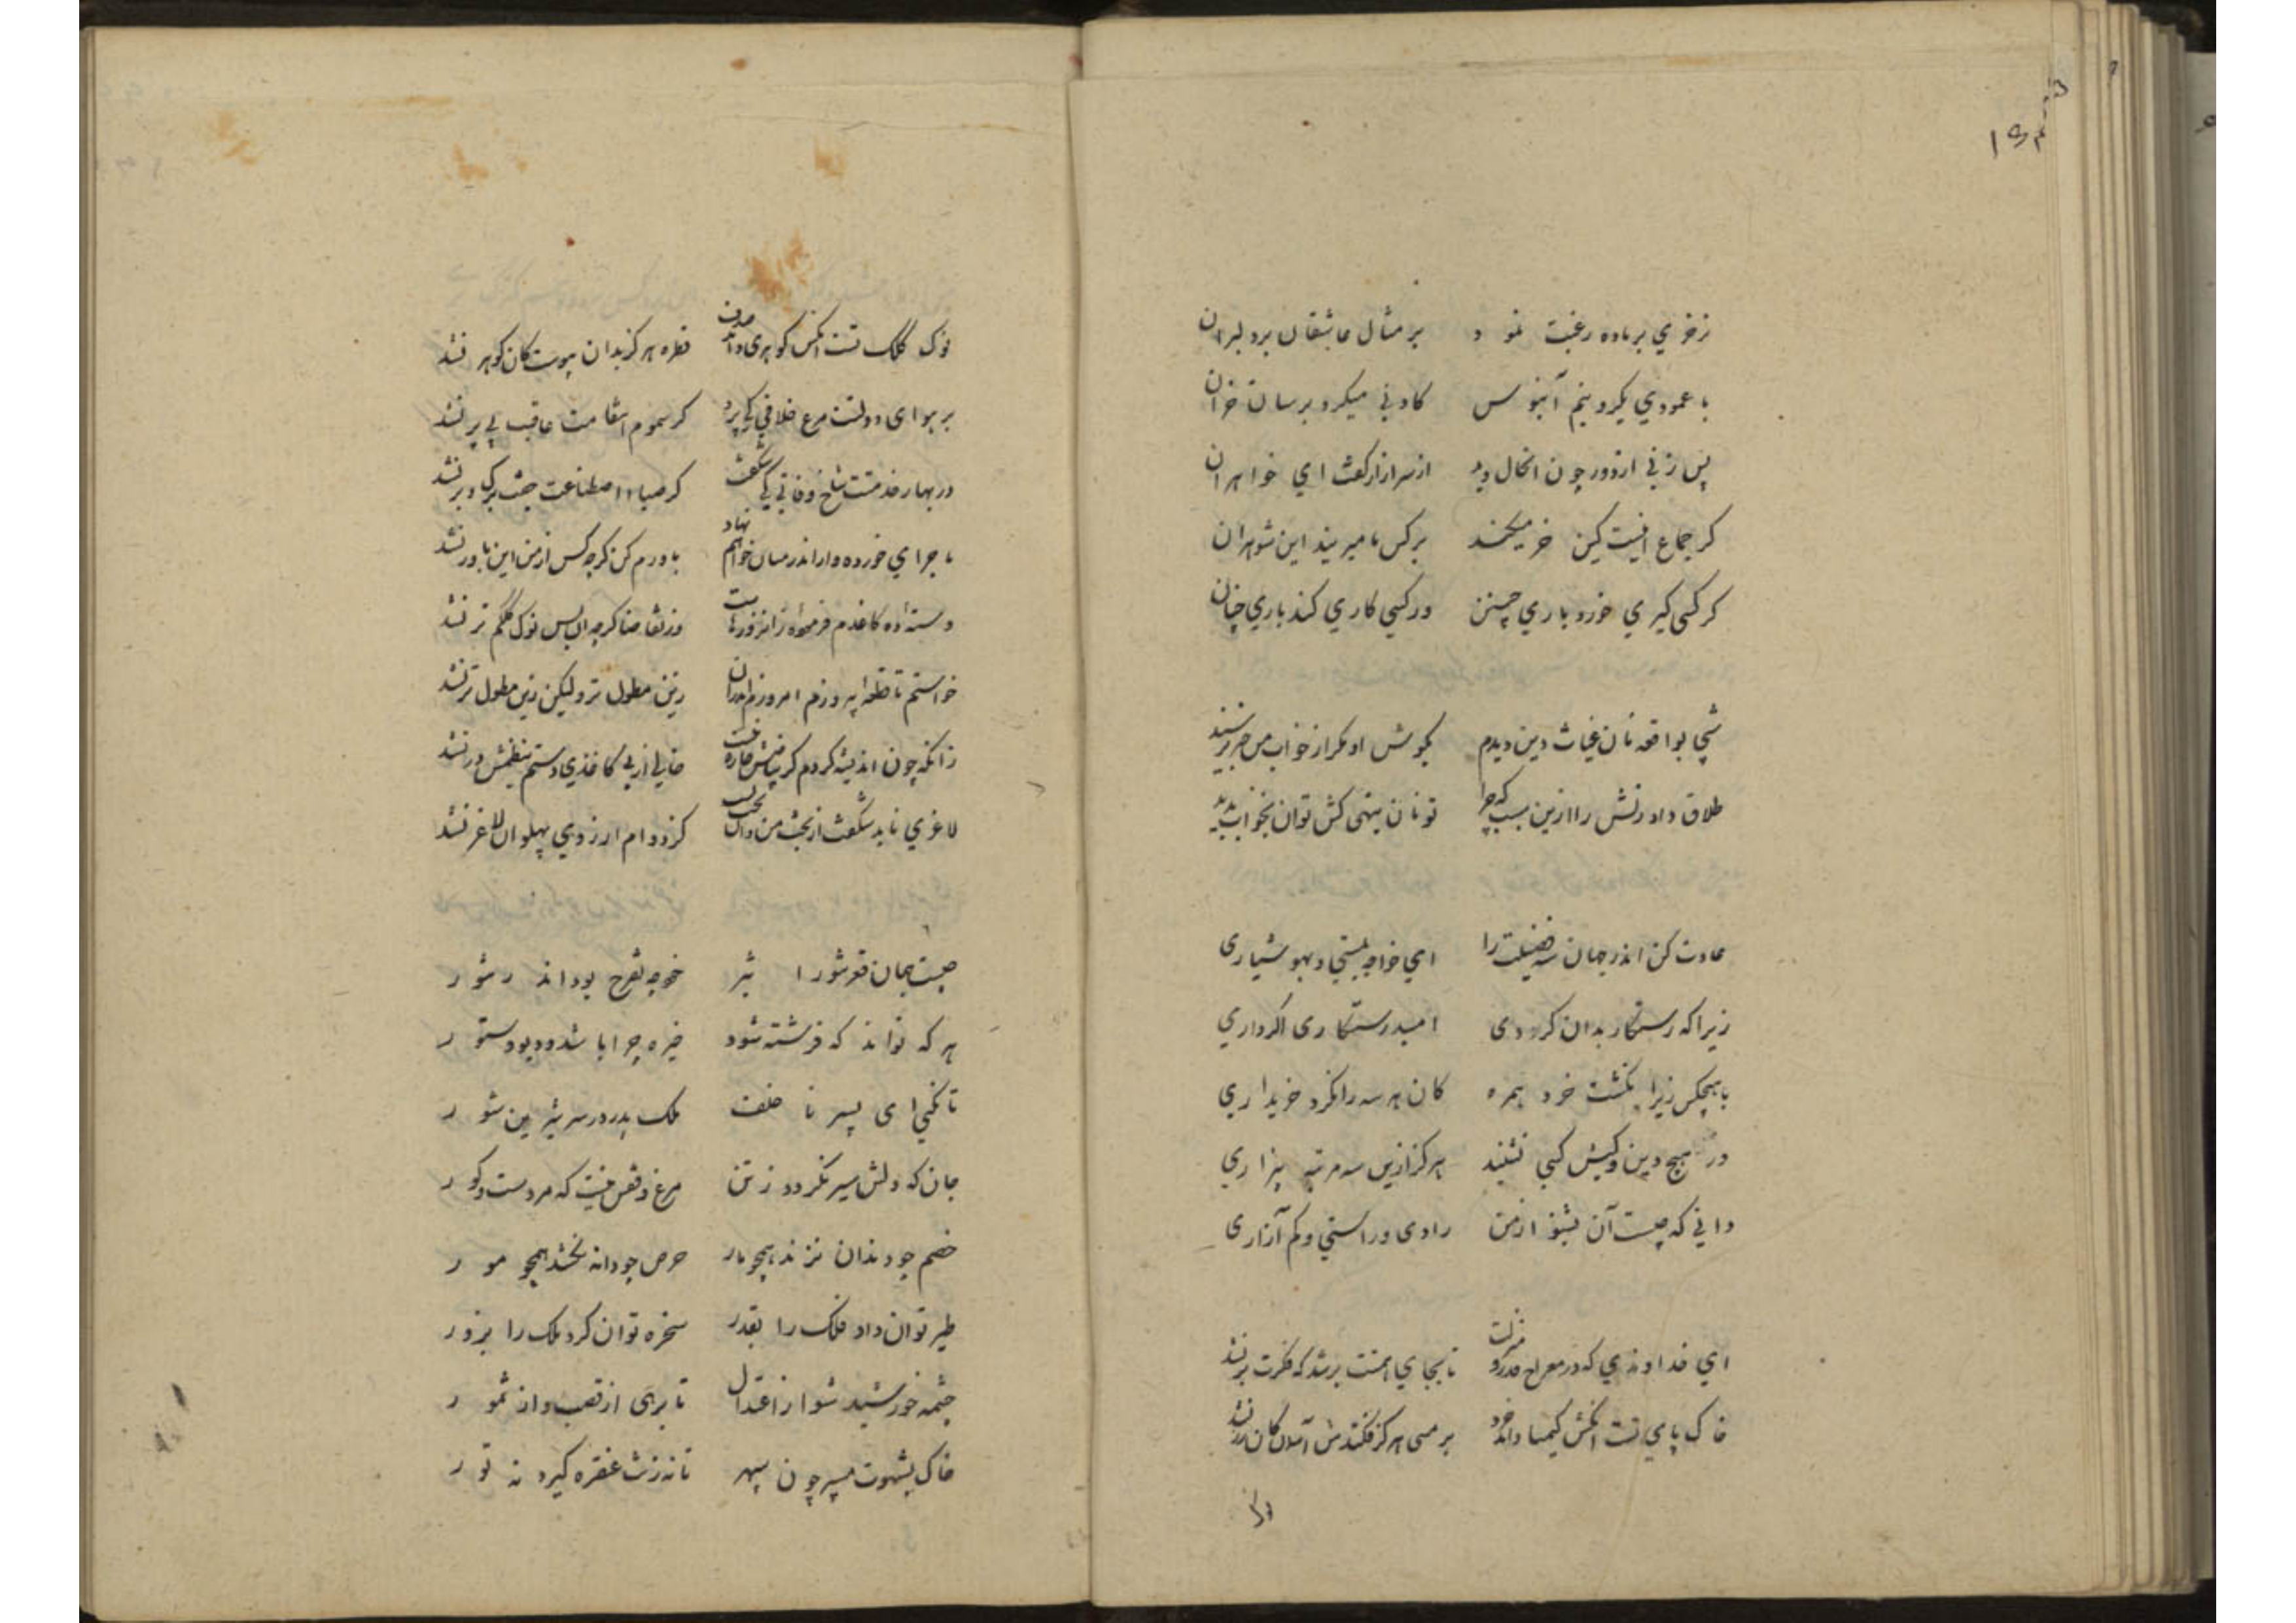 نر خری بر ماده رغبت نمود بر مثال عاشقان بر دلبران
با عمودی یکرو نیم آبنوس کاو نی میکرد بر سان خران
پس زنی از دور چون انحال دید از سر ازار کفت ای خواهران
کر جماع اینست کین خر میکند بر کس ما میریند این شوهران
کر کسی کیری خورد باری چنین ور کسی کاری کند باری چنان
شبی بواقعه نان غیاث دین دیدم بکوش او مکر از خواب من خبر برسید
طلاق داد زنش را ازین سبب که چرا تو نان بینی کش توان بخواب بدید
عادت کن اندر جهان سه فضیلت را ای خواجه بمستی و بهوشیاری
زیرا که رستکار بدان کردی امید رستکاری اکر داری
با هیچکس زیرا نکشت خرد همره کان هر سه را نکرد خریداری
در هیچ دین و کیش کسی نشنید هرکز ازین سه مرتبه بیزاری
دانی که چیست آن بشنو از من رادی و راستی و کم آزاری
ای خداوندی که در معراج قدر و منزلت تا بجای همتت برشد که فکرت بر نشد
خاک پای تست انکش کیمیا داند خرد بر مسی هرکز فکندش آسمان کان زر نشد
نوک کلک تست انکس کوهری داند صدف قطره هرکز بدان پیوست کان کوهر نشد
بر هوای دولتت مرغ خلافی کی پرد کر سموم انتقامت عاقبت بی پر نشد
در بهار خدمتت شاخ وفایی کی شکفت کز صبای اصطناعت جفت برک و بر نشد
ماجرای خورده وار اندر میان خواهم نهاد باورم کن کرچه کس از من این باور نشد
ور تقاضا کرچه ان بس نوک کلکم تر نشد
خواستم تا قطعه پردازم امروز اندران زین مطول تر ولیکن زین مطول تر نشد
زانکه چون اندیشه کردم کز بیاضش چاره نیست خالی از بی کاغذی دستم بنظمش در نشد
لاغری ناید شکفت از بخت من وان بخت کیست کز دوام ارزوی پهلوان لاغر نشد
چیست جهان قعر شورا شر خوجه تفرج بود اندر شور
هر که تواند که فرشته شود خیره چرا باشد و دیو و ستور
تا نکنی ای پسر نا خلف ملک پدر در سر شیرین شور
جان که دلش سیر نکردد ز تن مرغ و قفس نیست که مردست و کور
خصم چو دندان نزند همچو مار حرص چو دانه نکشد همچو مور
طیر توان داد فلک را بقدر سخره توان کرد ملک را بزور
چشمه خورشید شو از اعتدال تا برهی از قصب و از ثمور
خاک بشهوت مسپر چون سپهر تا نه زنت غفره کیرد نه تور